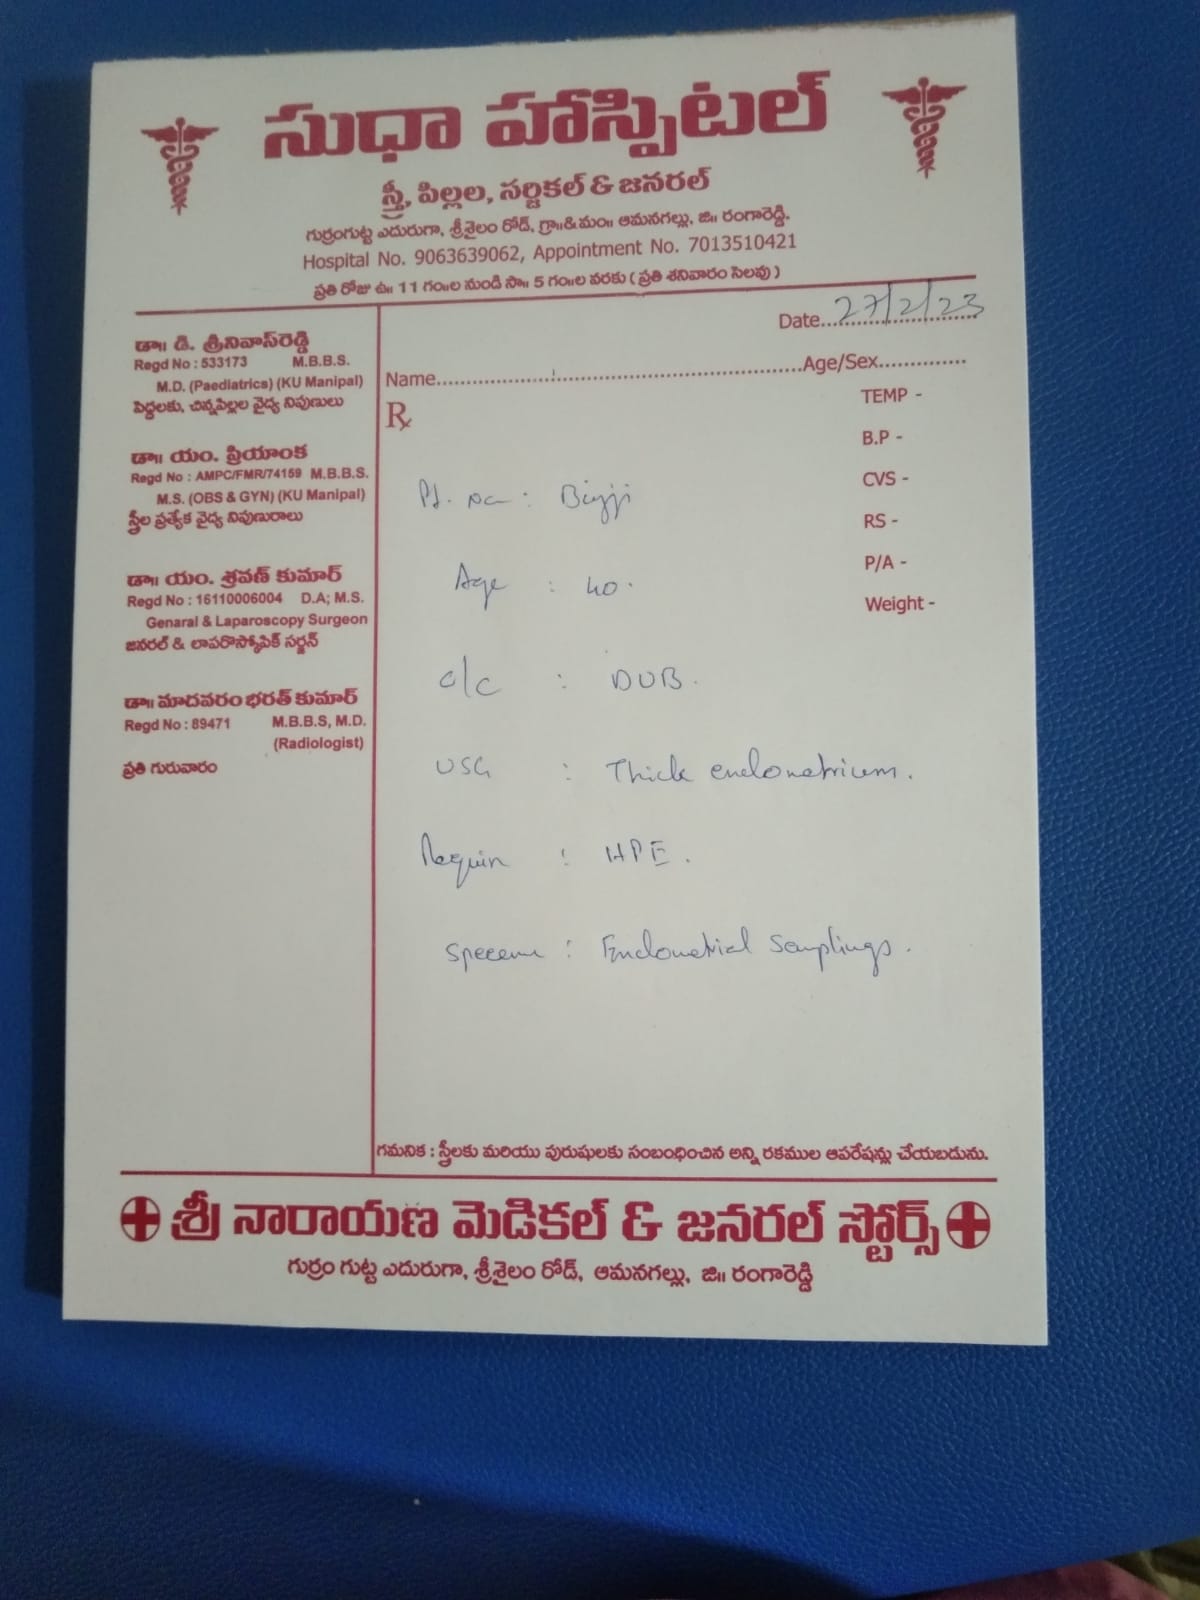 సుధా హాస్పిటల్
స్త్రీ, పిల్లల, సర్జికల్ & జనరల్
గుర్రంగుట్ట ఎదురుగా, శ్రీశైలం రోడ్, గ్రా॥&మం॥ ఆమనగల్లు, జి॥ రంగారెడ్డి.
Hospital No. 9063639062, Appointment No. 7013510421
ప్రతి రోజు ఉ॥ 11 గం॥ల నుండి సా॥ 5 గం॥ల వరకు ( ప్రతి శనివారం సెలవు )
Date 27/2/23
Name Age/Sex
డా॥ డి. శ్రీనివాస్‌రెడ్డి
Regd No : 533173 M.B.B.S.
M.D. (Paediatrics) (KU Manipal)
పెద్దలకు, చిన్నపిల్లల వైద్య నిపుణులు
డా॥ యం. ప్రియాంక
Regd No : AMPC/FMR/74159 M.B.B.S.
M.S. (OBS & GYN) (KU Manipal)
స్త్రీల ప్రత్యేక వైద్య నిపుణురాలు
డా॥ యం. శ్రవణ్ కుమార్
Regd No : 16110006004 D.A; M.S.
Genaral & Laparoscopy Surgeon
జనరల్ & లాపరొస్కోపిక్ సర్జన్
డా॥ మాదవరం భరత్ కుమార్
Regd No : 89471 M.B.B.S, M.D.
(Radiologist)
ప్రతి గురువారం
℞
TEMP -
B.P -
CVS -
RS -
P/A -
Weight -
Pt. :
Age : 40.
c/c : DUB.
USG : Thick endometrium.
: HPE.
: Endometrial Samplings.
గమనిక : స్త్రీలకు మరియు పురుషులకు సంబంధించిన అన్ని రకముల ఆపరేషన్లు చేయబడును.
శ్రీ నారాయణ మెడికల్ & జనరల్ స్టోర్స్
గుర్రం గుట్ట ఎదురుగా, శ్రీశైలం రోడ్, ఆమనగల్లు, జి॥ రంగారెడ్డి